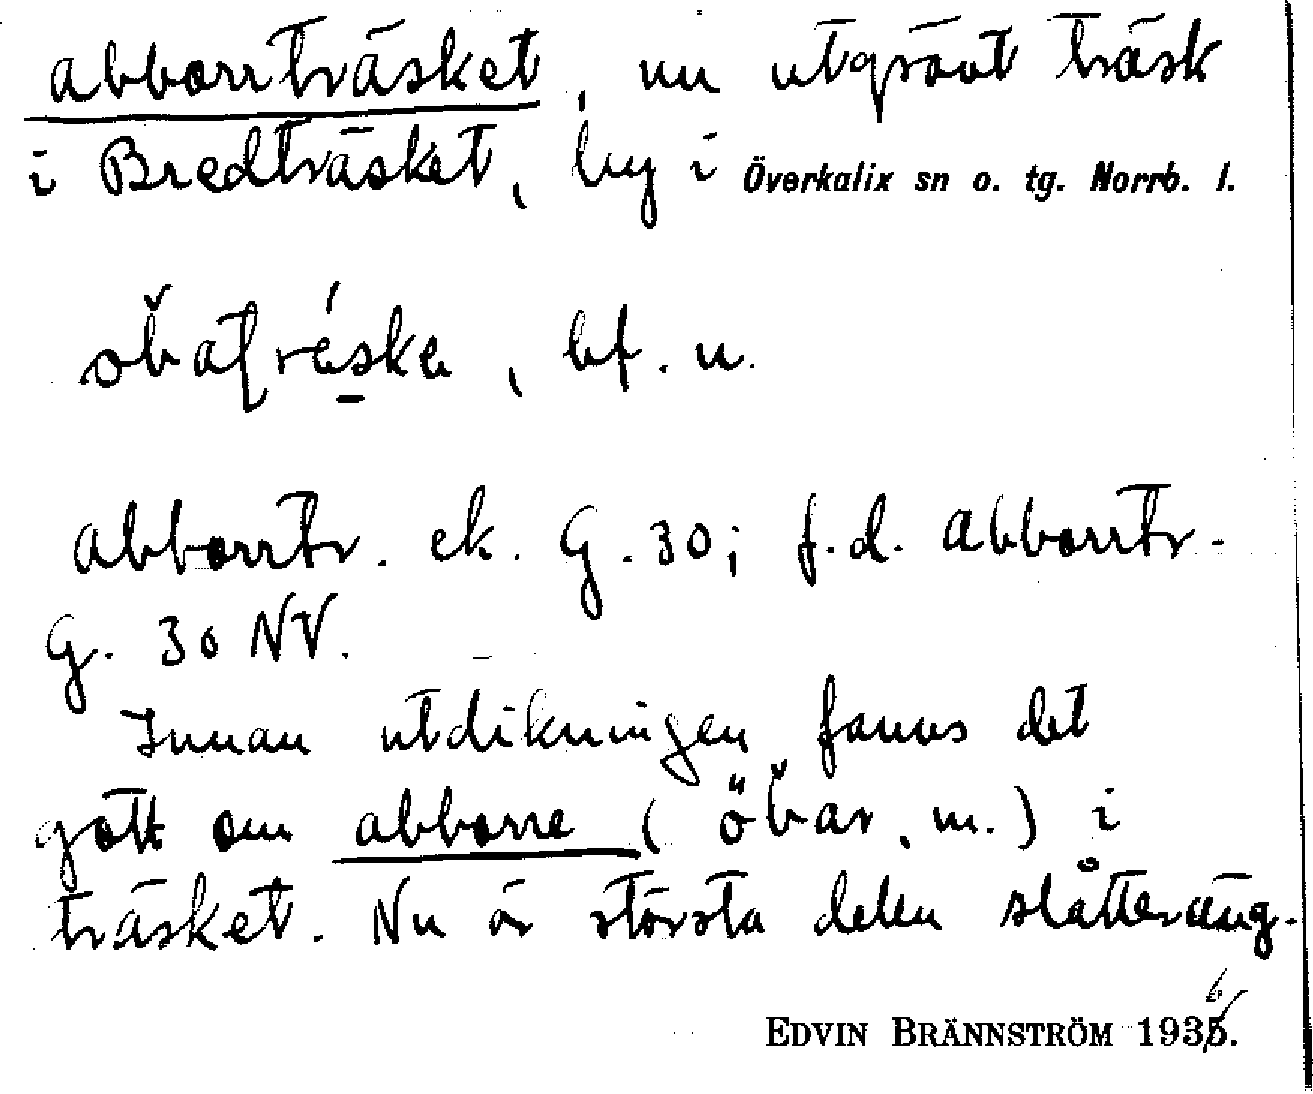 abborrträsket, nu utgrävt träsk
i Bredträsket, by i Överkalix sn o. tg. Norrb. l.
bf. n.
abborrtr. ek. G. 30; f.d. abborrtr-
G. 30 NV.
Innan utdikningen fanns det
gott om abborre (öbar, m.) i
träsket. Nu är största delen slåtteräng.
EDVIN BRÄNNSTRÖM 1936.